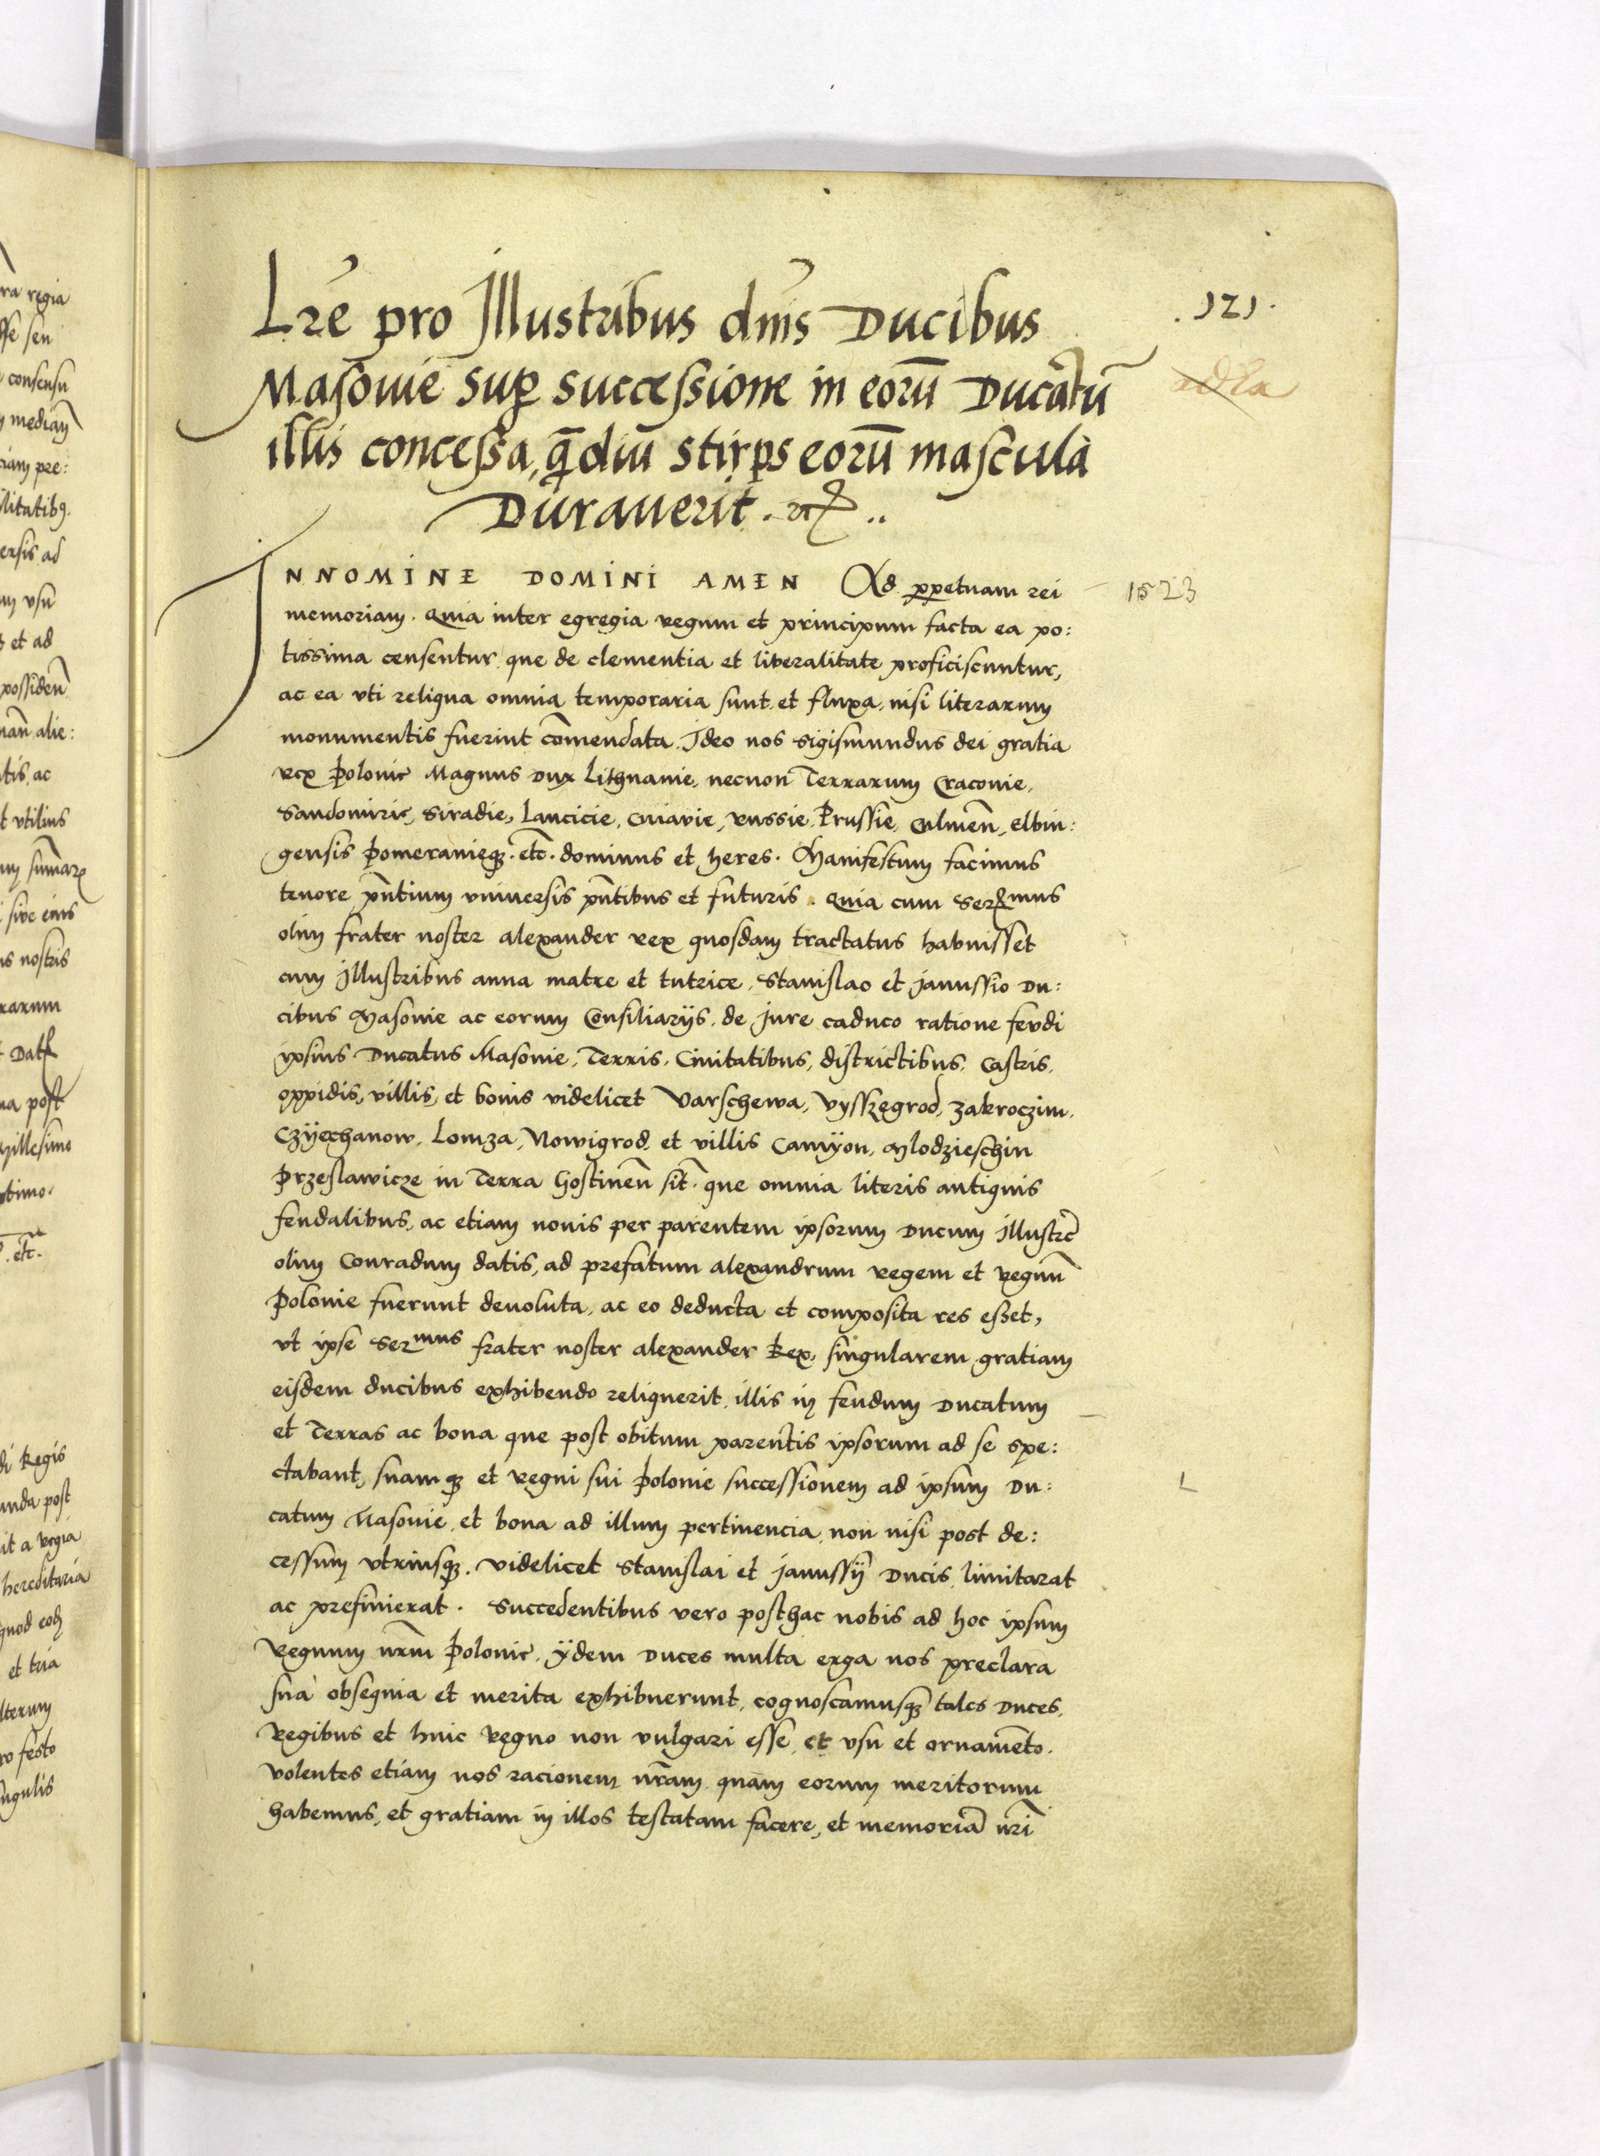 .121.
Lr̄e pro Illustribus dn̄is Ducibus
Masouie sup̱ successione in eorū Ducatū
illis concessa, q̄diu stirps eorū mascula
Durauerit . etc ..
IN NOMINE DOMINI AMEN Ad ꝑpetuam rei
1523
memoriam . Quia inter egregia regum et principum facta ea po:
tissima censentur que de clementia et liberalitate proficiscuntur,
ac ea vti reliqua omnia temporaria sunt et fluxa, nisi literarum
monumentis fuerint cōmendata. Ideo nos Sigismundus dei gratia
rex Polonie Magnus Dux Lithuanie, necnon Terrarum Cracouie,
Sandomirie, Siradie, Lancicie, Cuiauie, Russie, Prussie, Culmen̄, Elbin:
gensis Pomeranieqꝫ . etc̄ . dominus et heres . Manifestum facimus
tenore pn̄tium vniuersis pn̄tibus et futuris . Quia cum Serᵐᵘˢ
olim frater noster Alexander rex quosdam tractatus habuisset
cum Illustribus Anna matre et tutrice, Stanislao et Janussio Du:
cibus Masouie ac eorum Consiliarijs, de Jure caduco ratione feudi
ipsius Ducatus Masouie, Terris, Ciuitatibus, districtibus, Castris,
oppidis, villis, et bonis videlicet Varschewa, Vysszegrod, Zakroczim,
Czÿechanow, Lomza, Nowigrod, et villis Camÿon, Mlodzieschin
Przeslawicze in Terra Gostinen̄ sit̄ . que omnia literis antiquis
feudalibus, ac etiam nouis per parentem ipsorum Ducum Illustrē
olim Conradum datis, ad prefatum Alexandrum regem et regnū
Polonie fuerunt deuoluta, ac eo deducta et composita res esset,
vt ipse Serᵐᵘˢ frater noster Alexander Rex, singularem gratiam
eisdem ducibus exhibendo reliquerit, illis in feudum Ducatum
et Terras ac bona que post obitum parentis ipsorum ad se spe:
ctabant, suamqꝫ et regni sui Polonie successionem ad ipsum Du:
L
catum Masouie, et bona ad illum pertinencia, non nisi post de:
cessum vtriusqꝫ . videlicet Stanislai et Janussij Ducis limitarat
ac prefinierat . Succedentibus vero posthac nobis ad hoc ipsum
Regnum nr̄m Polonie, ÿdem Duces multa erga nos preclara
sua obsequia et merita exhibuerunt, cognoscamusqꝫ tales Duces,
Regibus et huic regno non vulgari esse, et vsu et ornamēto .
Volentes etiam nos racionem nr̄am quam eorum meritorum
habemus, et gratiam in illos testatam facere, et memoriā nr̄i